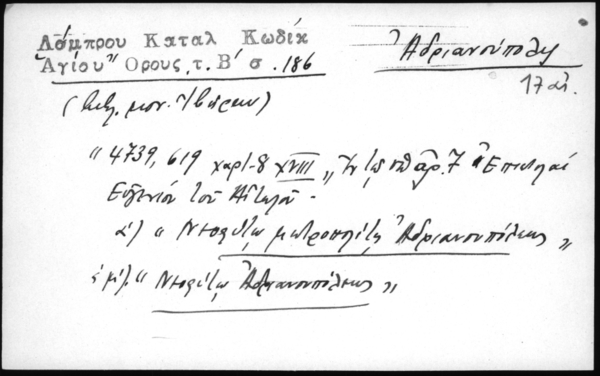 Λάμπρου Καταλ Κωδίκ
Ἁγίου" Ορους, τ. Β' σ. 186
Ἀδριανούπολις
17 αἰ.
(Βιβλ. μον. Ἰβήρων)
" 4739, 619 χαρτ-8 XVIII " Ἐν τῷ ὑπ' ἀρ. 7 " Ἐπιστολαὶ
Εὐγενίου τοῦ Αἰτωλοῦ -
α) " Νεοφύτῳ μητροπολίτῃ Ἀδριανουπόλεως "
" Νεοφύτῳ Ἀδριανουπόλεως "